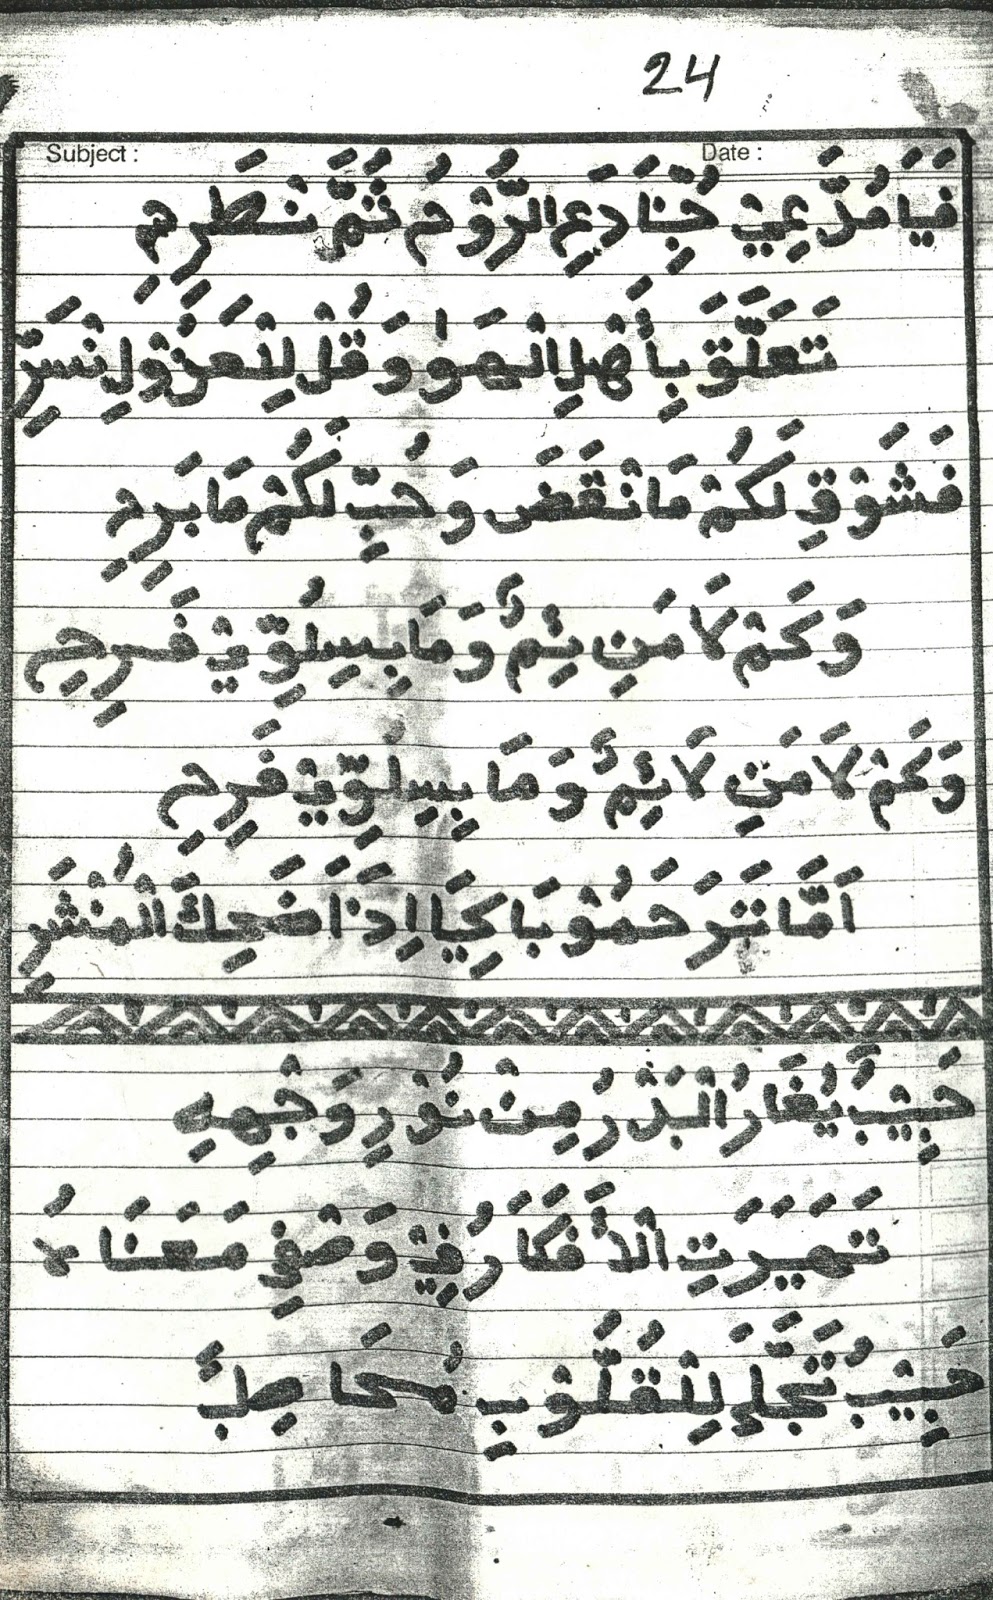 24
Subject : Date :
فَيَا مُدَّعِيْ حُبِّنَا دَعِ الرُّوْحُ ثَمَّ نْطَرِحِ
تَعَلَّقَ بِأَهْلِ الْهَوٰا وَقُلْ لِلْعَزُوْلِ نْسَرِحِ
فَشَوْقِ لَكُمْ مَا نْقَضَ وَحُبِّ لَكُمْ مَا بَرِحِ
وَكَمْ لَا مَنِ يُمْ وَمَا بِسِلُوِّيْ فَرِحِ
وَكَمْ لَا مَنِ لَائِمُ وَمَا بِسِلِوِّيْ فَرِحِ
اَمَّا تَرَحَمُوْ بَاكِيَا اِذَا ضَحِكَ الْمُنْشَرِ
حَبِيْبٌ يُغَارُ الْبَدْرُ مِنْ نُوْرِ وَجْهِهِ
تَحَيَرَتِ الْأَفْكَارُ فِيْ وَصْفِ مَعْنَاهُ
حَبِيْبٌ تَجَلَّ لِلْقُلُوْبِ مُخَاطِبً